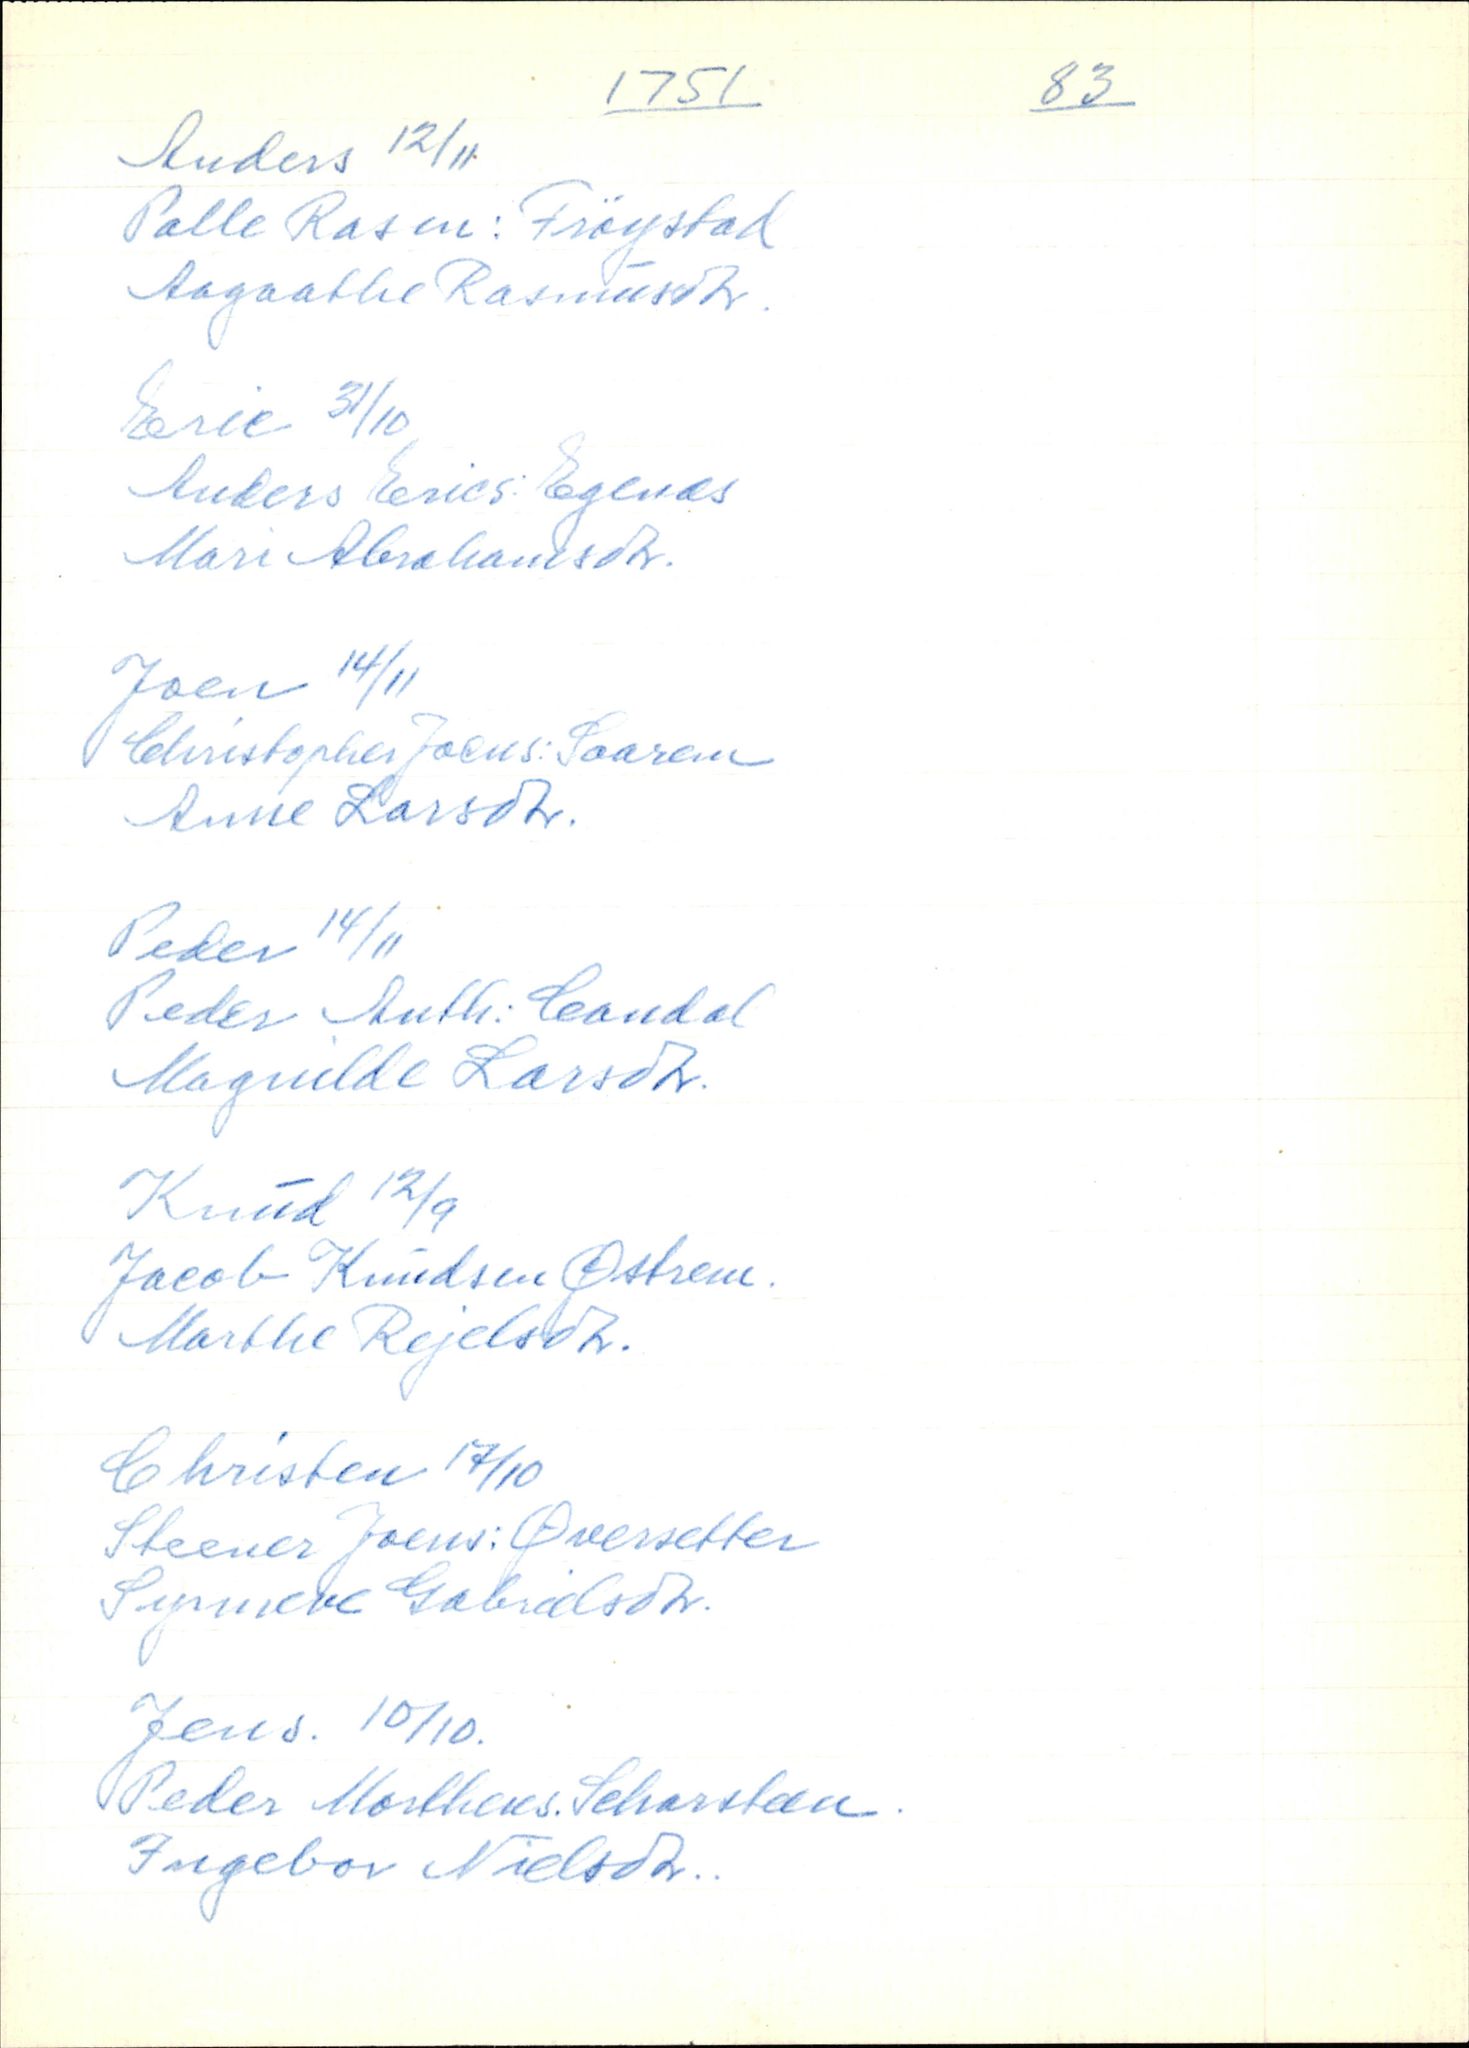 1751 83
Anders 12/11.
Palle Rasm: Fröystad
Aagaathe Rasmusdtr.
Eric 31/10
Anders Erics: Egenæs
Mari Abrahamsdtr.
Joen 14/11
Christopher Joens: Saarem
Anne Larsdtr.
Peder 14/11
Peder Anth: Candal
Magnilde Larsdtr.
Knud 12/9
Jacob Knudsen Østrem.
Marthe Rejelsdtr.
Christen 17/10
Steener Joens: Øversetter
Synneve Gabrielsdtr.
Jens. 10/10.
Peder Morthens. Scharsteen.
Ingebor Nielsdtr..